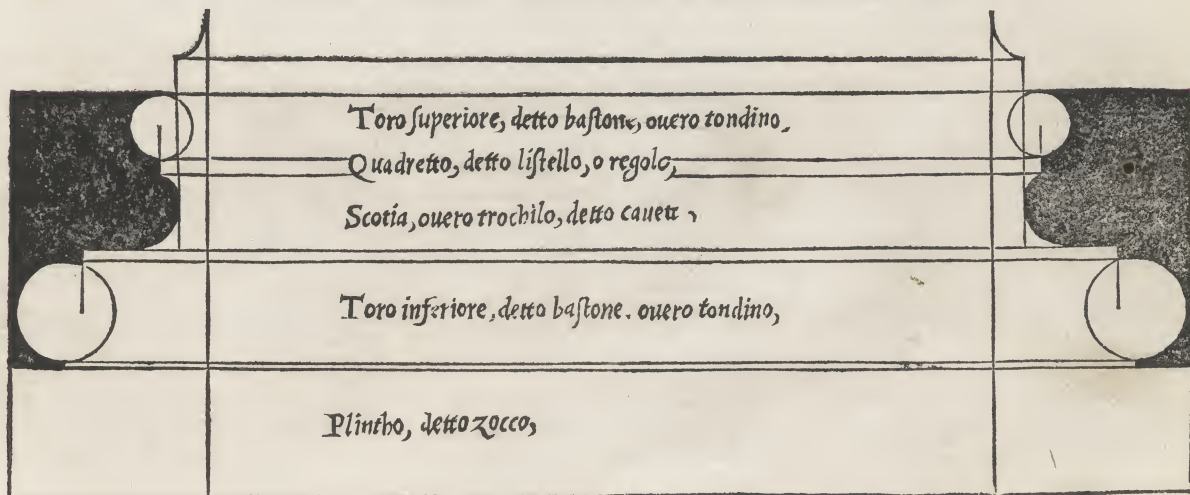 Toro ſuperiore, detto baſtone, ouero tondino,
Quadretto, detto liſtello, o regolo,
Scotia, ouero trochilo, detto cauett ,
Toro inferiore, detto baſtone. ouero tondino,
Plintho, detto zocco,